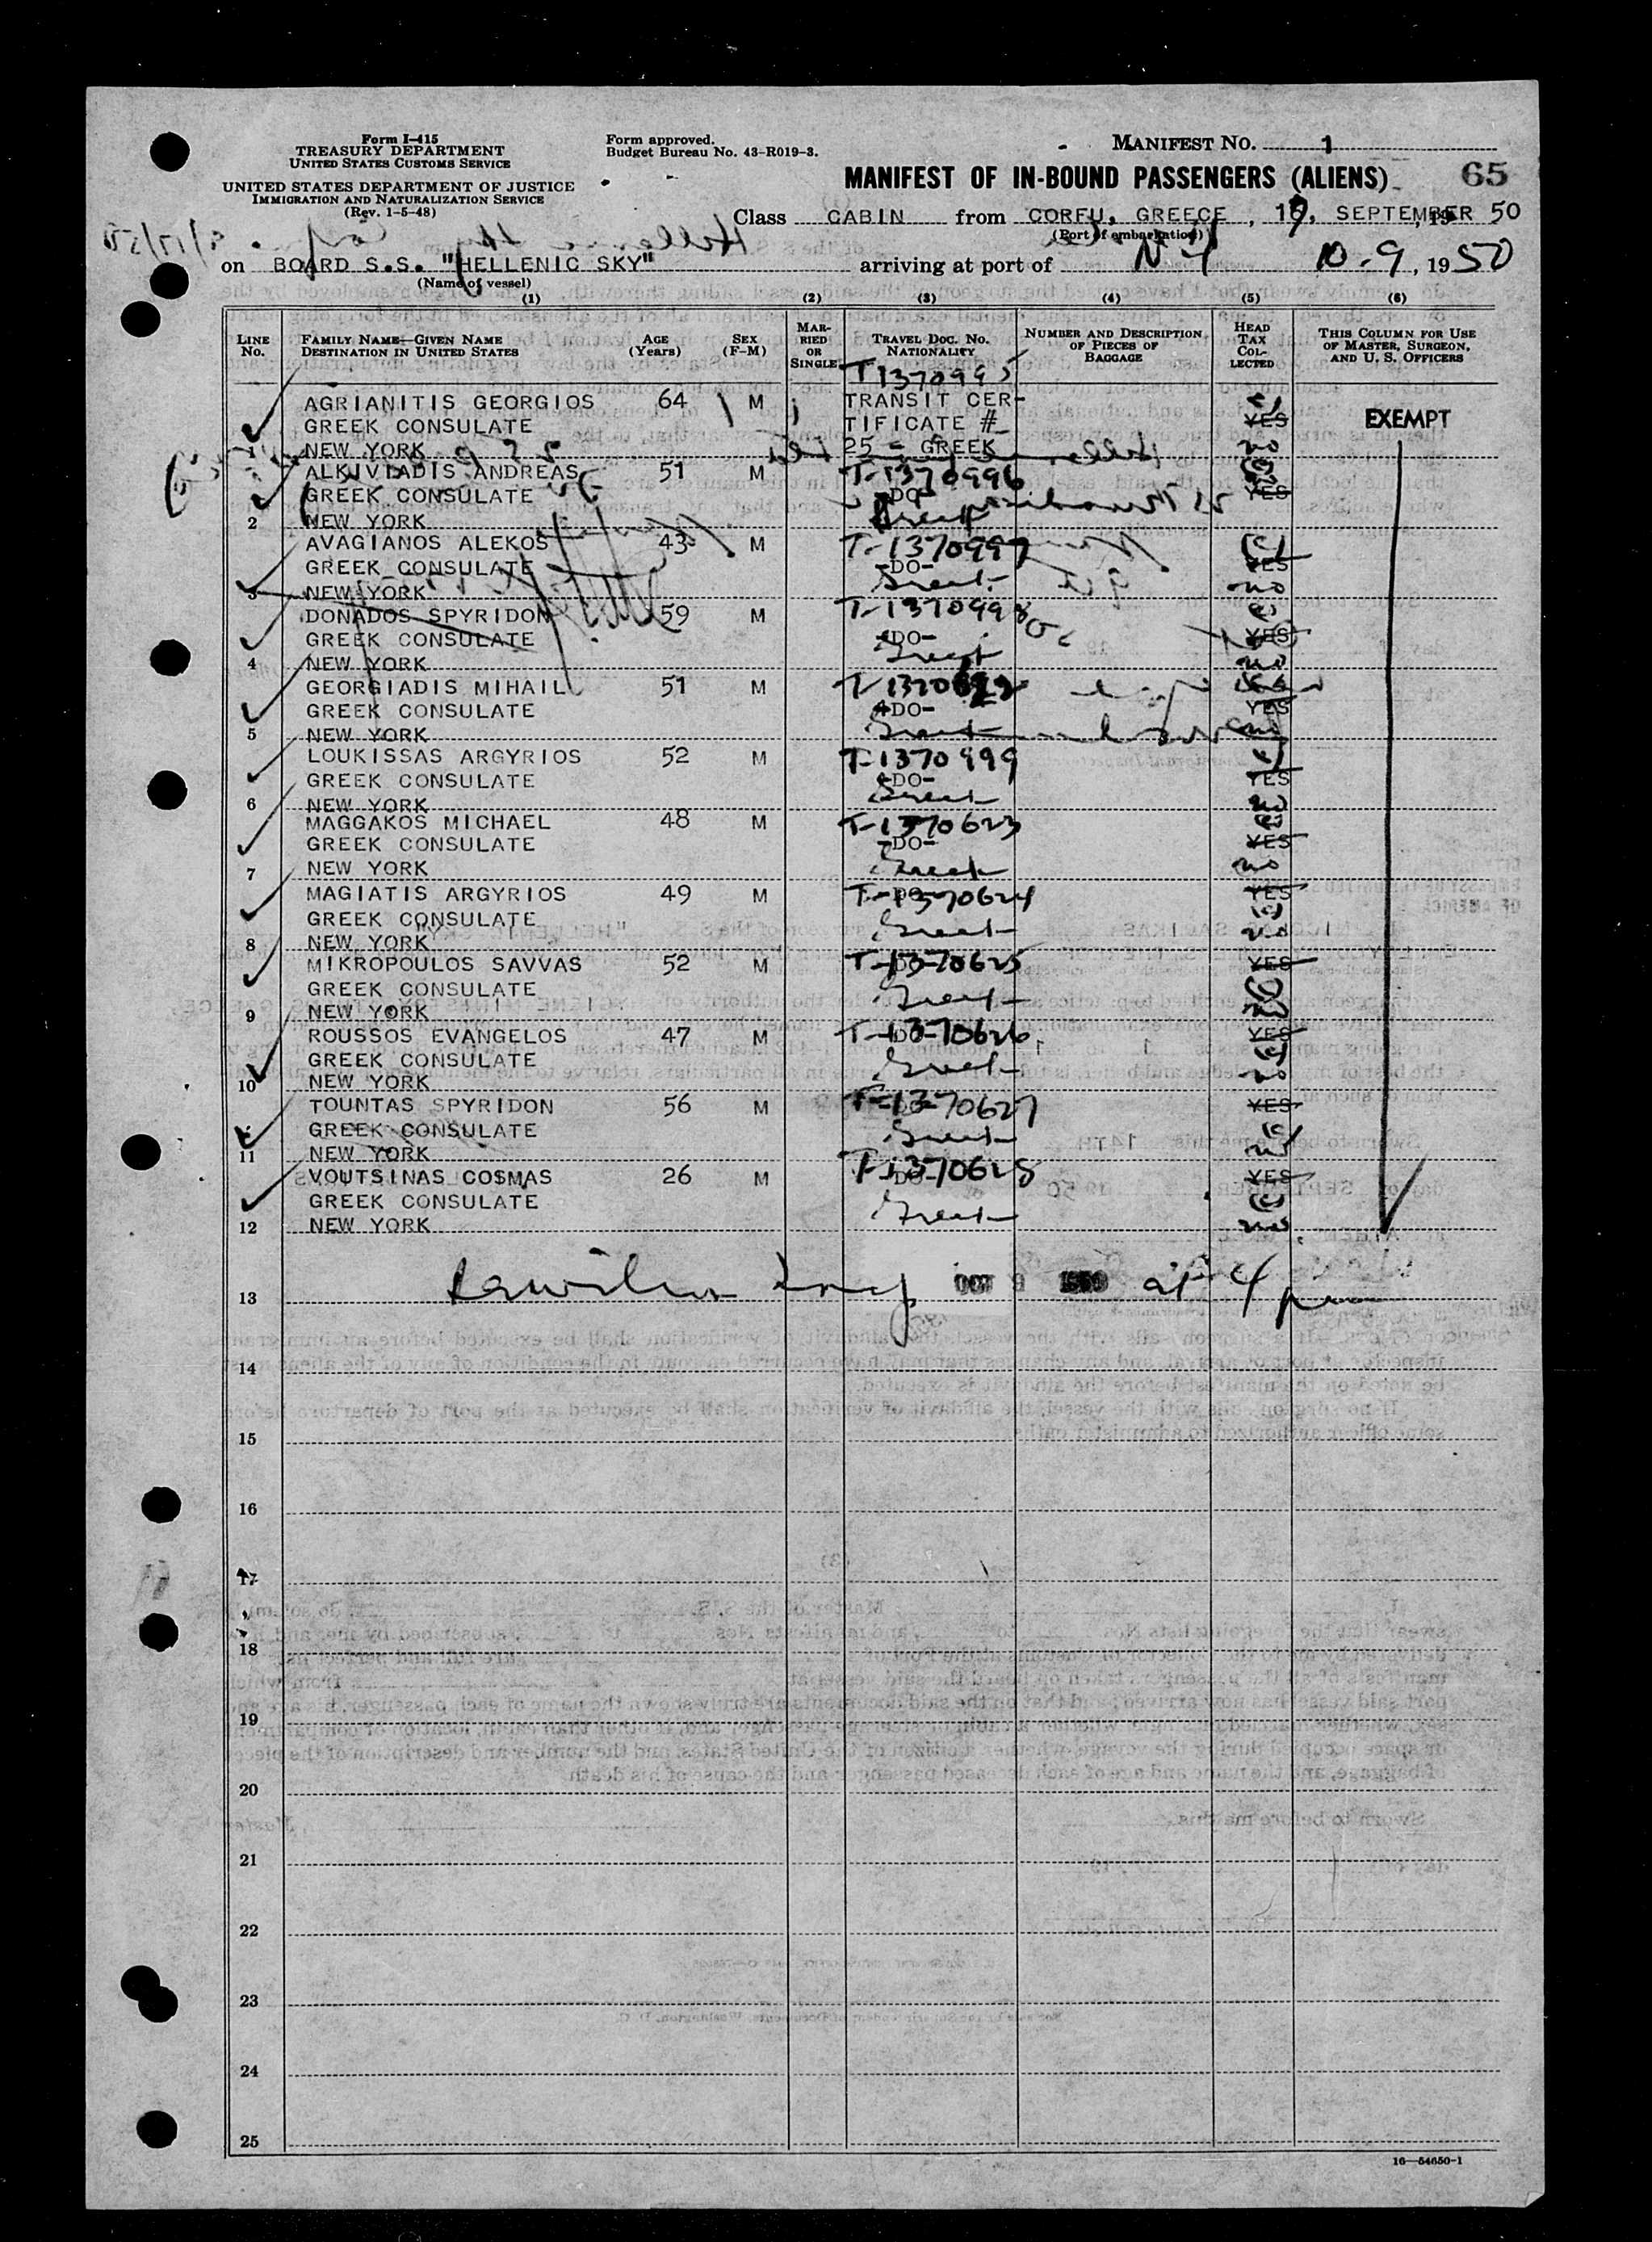 Form I-415
TREASURY DEPARTMENT
UNITED STATES CUSTOMS SERVICE
UNITED STATES DEPARTMENT OF JUSTICE
IMMIGRATION AND NATURALIZATION SERVICE
(Rev. 1-5-48)
Form approved.
Budget Bureau No. 43-R019-3.
MANIFEST NO. 1
MANIFEST OF IN-BOUND PASSENGERS (ALIENS) 65
Class CABIN from CORFU, GREECE, SEPTEMBER 50
(Port of embarkation)
on BOARD S.S. "HELLENIC SKY" arriving at port of N Y 10-9, 1950
(Name of vessel)
(1) (2) (3) (4) (5) (6)
LINE No. FAMILY NAME—GIVEN NAME DESTINATION IN UNITED STATES AGE (Years) SEX (F-M) MARRIED OR SINGLE TRAVEL DOC. NO. NATIONALITY NUMBER AND DESCRIPTION OF PIECES OF BAGGAGE HEAD TAX COLLECTED THIS COLUMN FOR USE OF MASTER, SURGEON, AND U. S. OFFICERS
T1370995
AGRIANITIS GEORGIOS 64 M TRANSIT CER-
GREEK CONSULATE TIFICATE # YES EXEMPT
NEW YORK 25 - GREEK no
ALKIVIADIS ANDREAS 51 M T-1370996
GREEK CONSULATE -DO- YES
2 NEW YORK Greek
AVAGIANOS ALEKOS 43 M T-1370997
GREEK CONSULATE -DO- YES
3 NEW YORK Greek no
DONADOS SPYRIDON 59 M T-1370998
GREEK CONSULATE -DO- YES
4 NEW YORK Greek no
GEORGIADIS MIHAIL 51 M
GREEK CONSULATE -DO- YES
5 NEW YORK Greek no
LOUKISSAS ARGYRIOS 52 M T-1370999
GREEK CONSULATE -DO- YES
6 NEW YORK Greek no
MAGGAKOS MICHAEL 48 M T-1370623
GREEK CONSULATE -DO- YES
7 NEW YORK Greek no
MAGIATIS ARGYRIOS 49 M T-1370624 YES
GREEK CONSULATE Greek
8 NEW YORK no
MIKROPOULOS SAVVAS 52 M T-1370625 YES
GREEK CONSULATE Greek
9 NEW YORK no
ROUSSOS EVANGELOS 47 M T-1370626 YES
GREEK CONSULATE Greek
10 NEW YORK no
TOUNTAS SPYRIDON 56 M T-1370627 YES
GREEK CONSULATE Greek
11 NEW YORK no
VOUTSINAS COSMAS 26 M T-1370628 YES
GREEK CONSULATE Greek
12 NEW YORK no
13 OCT 9 1950 at 4 pm
14
15
16
17
18
19
20
21
22
23
24
25
16—54650-1